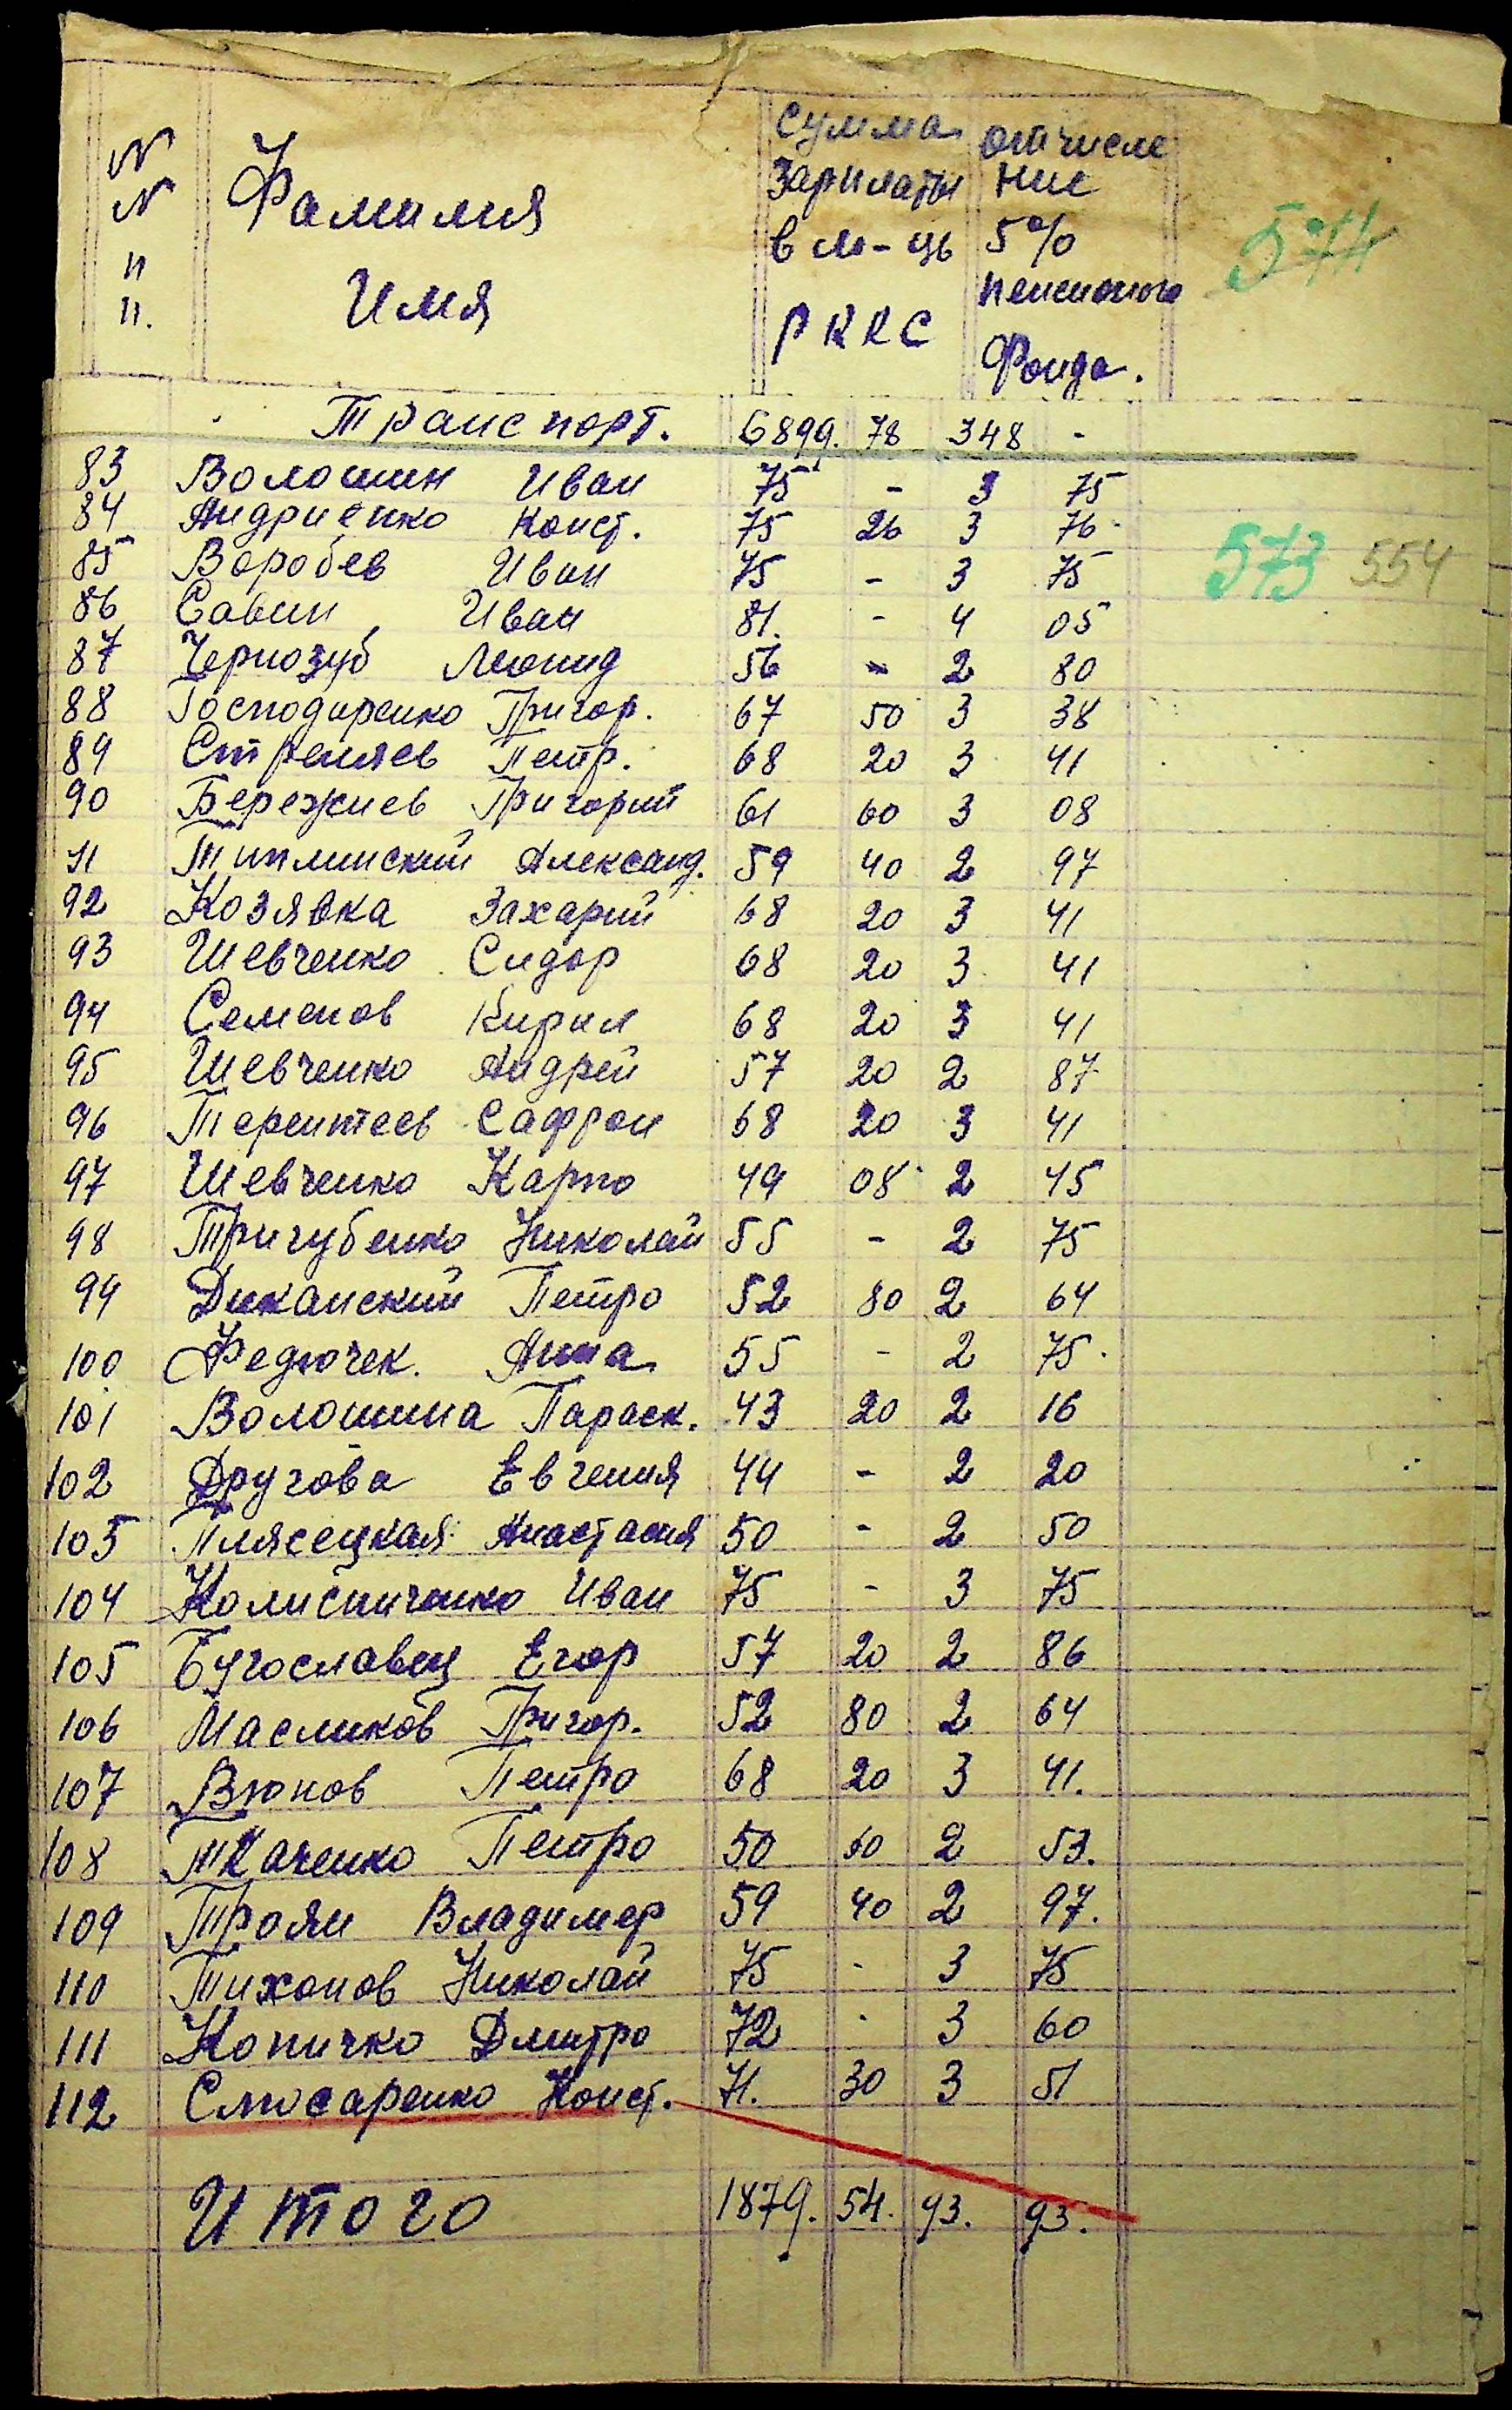 N N п п.
Фамилия Имя
Сумма Зарплаты в м-ць РККС
отчисление 5% пенсионого Фонда.
574
Транспорт. 6899. 78 348 -
83 Волошин Иван 75 - 3 75
84 Андриенко Конст. 75 26 3 76
573 554
85 Воробев Иван 75 - 3 75
86 Савин Иван 81. - 4 05
87 Чернозуб Леонид 56 - 2 80
88 Господаренко Григор. 67 50 3 38
89 Стреляев Петр. 68 20 3 41
90 Бережнев Григорий 61 60 3 08
91 Типлинский Александ. 59 40 2 97
92 Козявка Захарий 68 20 3 41
93 Шевченко Сидор 68 20 3 41
94 Семенов Кирил 68 20 3 41
95 Шевченко Андрей 57 20 2 87
96 Терентеев Сафрон 68 20 3 41
97 Шевченко Карпо 49 08 2 45
98 Тригубенко Николай 55 - 2 75
99 Диканский Петро 52 80 2 64
100 Федючек. Анна 55 - 2 75
101 Волошина Параск. 43 20 2 16
102 Другова Евгения 44 - 2 20
103 Плясецкая Анастасия 50 - 2 50
104 Колисниченко Иван 75 - 3 75
105 Бугославец Егор 57 20 2 86
106 Масликов Григор. 52 80 2 64
107 Вюнов Петро 68 20 3 41.
108 Ткаченко Петро 50 60 2 53.
109 Троян Владимер 59 40 2 97.
110 Тихонов Николай 75 - 3 75
111 Копичко Дмитро 72 - 3 60
112 Слюсаренко Конст. 71. 30 3 51
Итого 1879. 54. 93. 93.